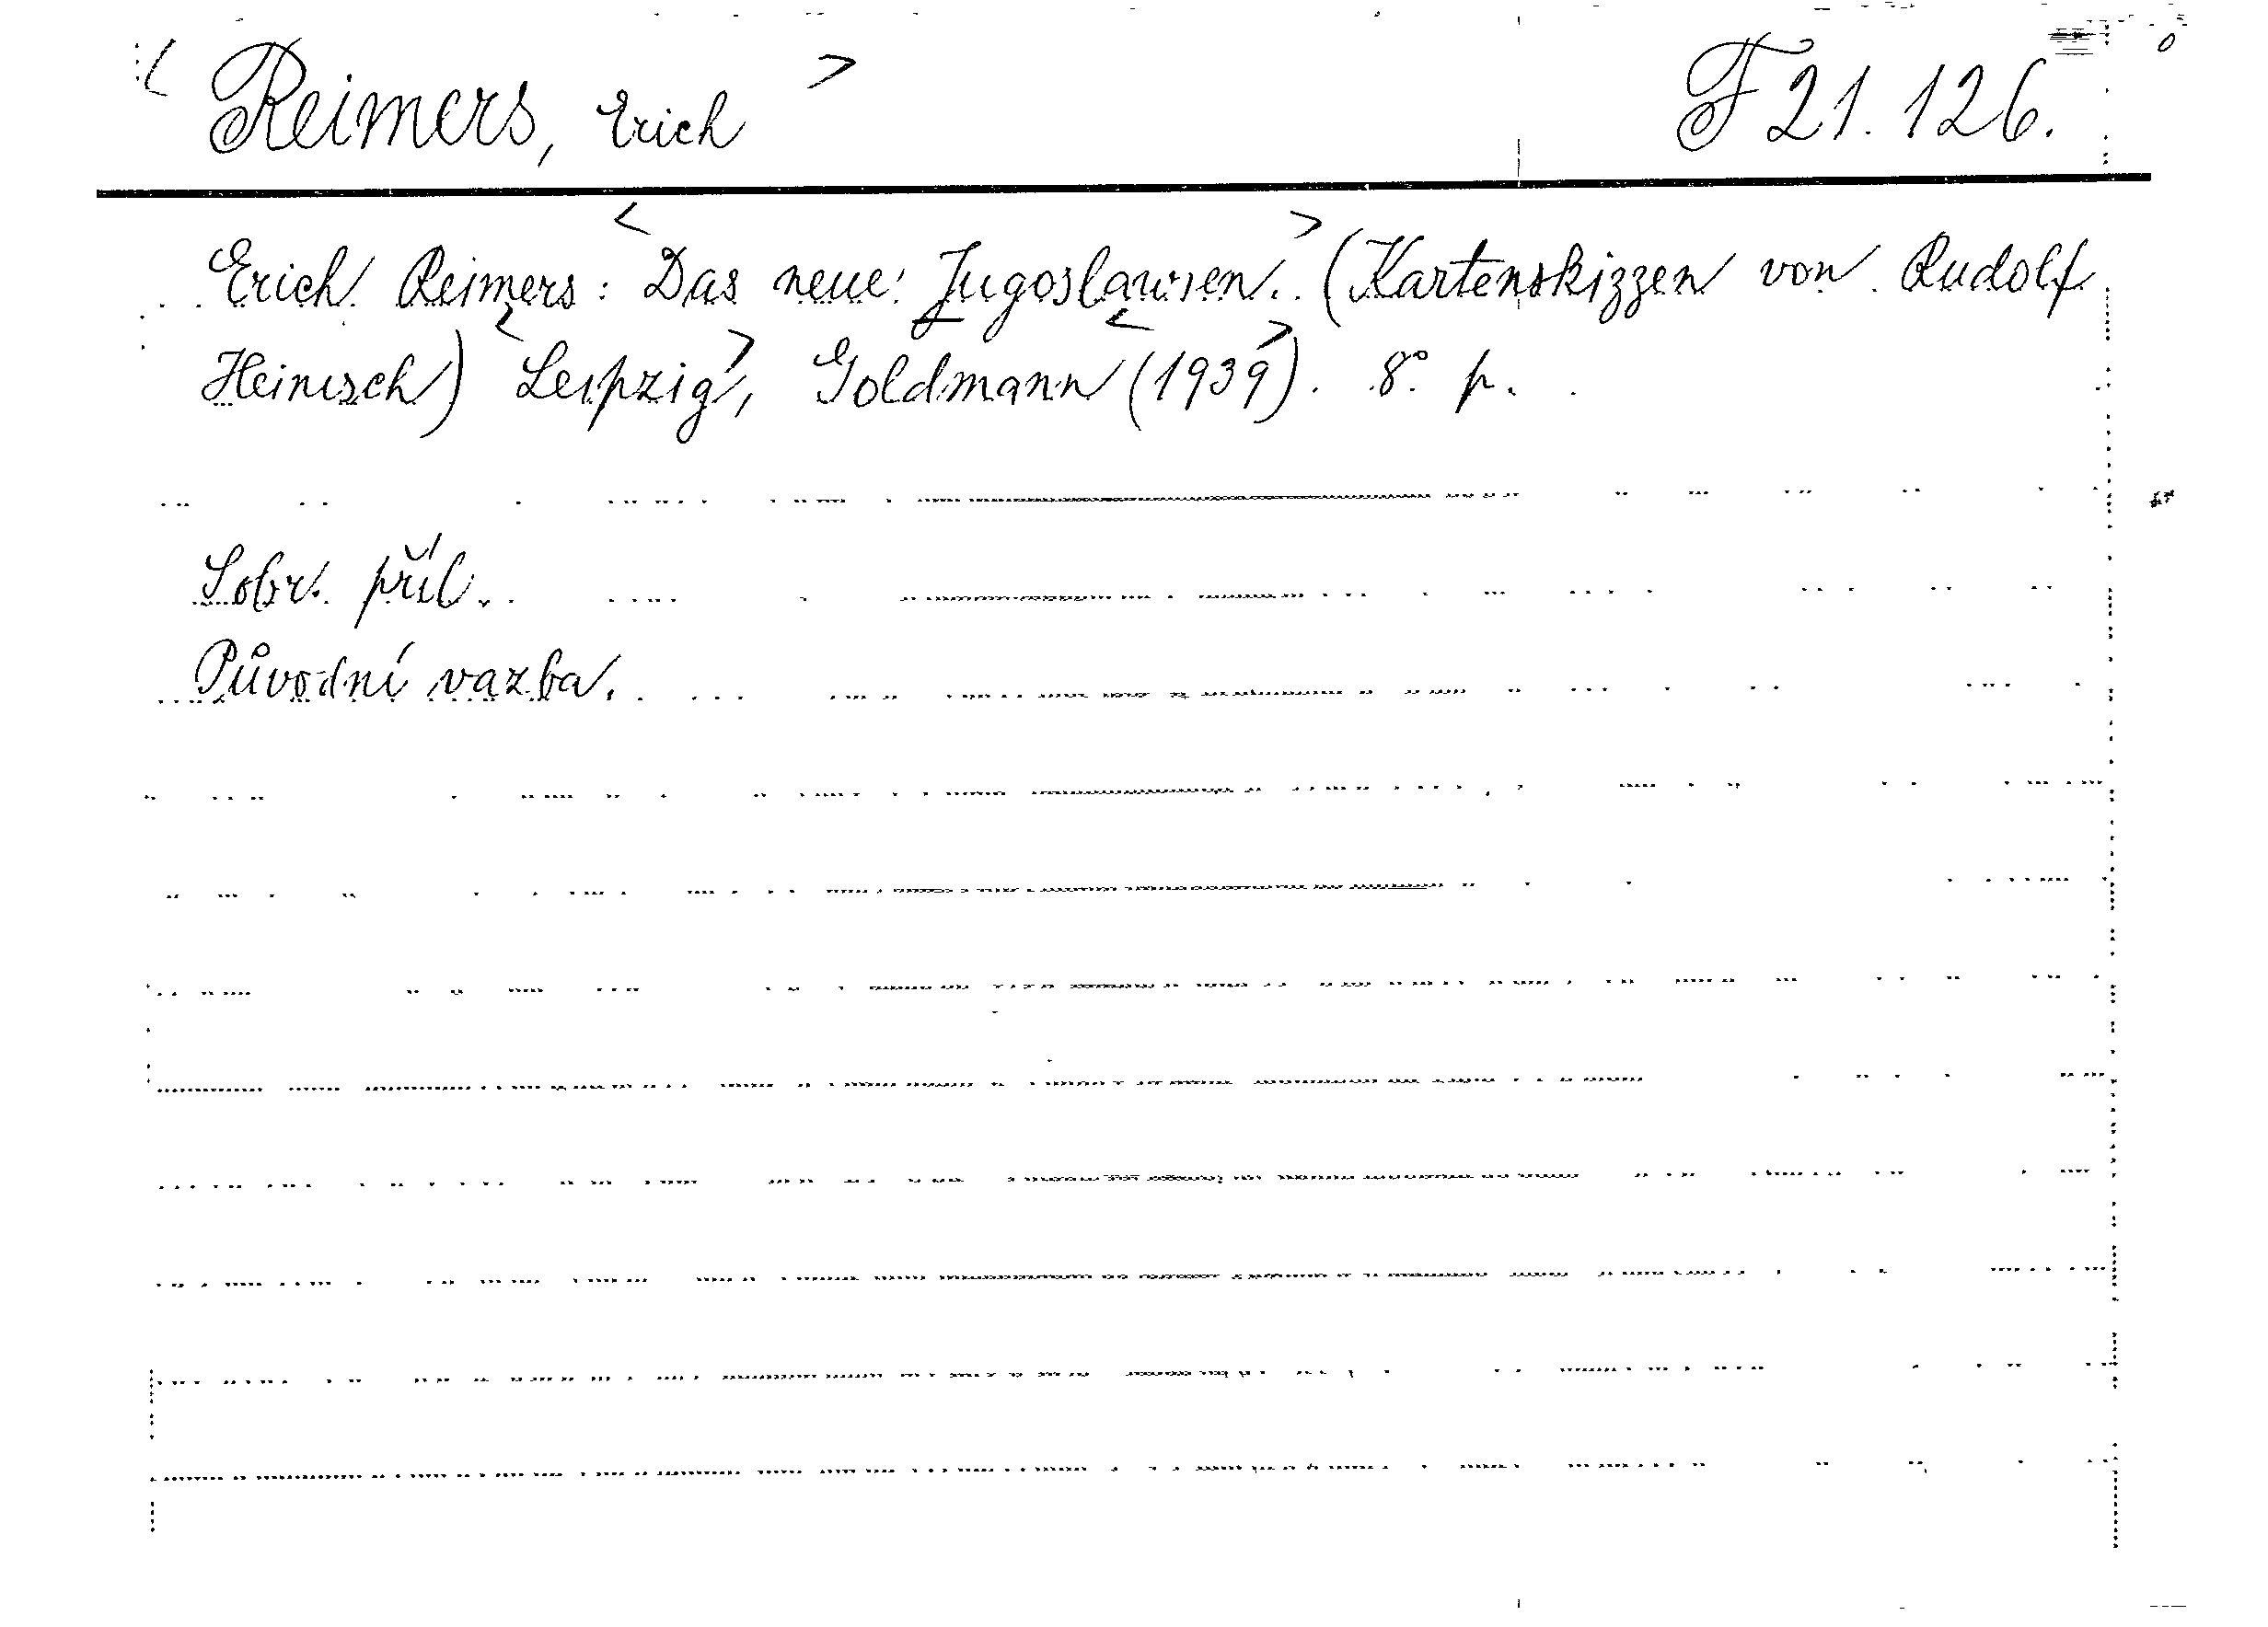 < Reimers, Erich > F 21.126.
Erich Reimers: <Das neue Jugoslawien.> (Kartenskizzen von Rudolf
Heinisch) <Leipzig>, Goldmann (<1939>). 8° p.
Sobr. příl.
Původní vazba.